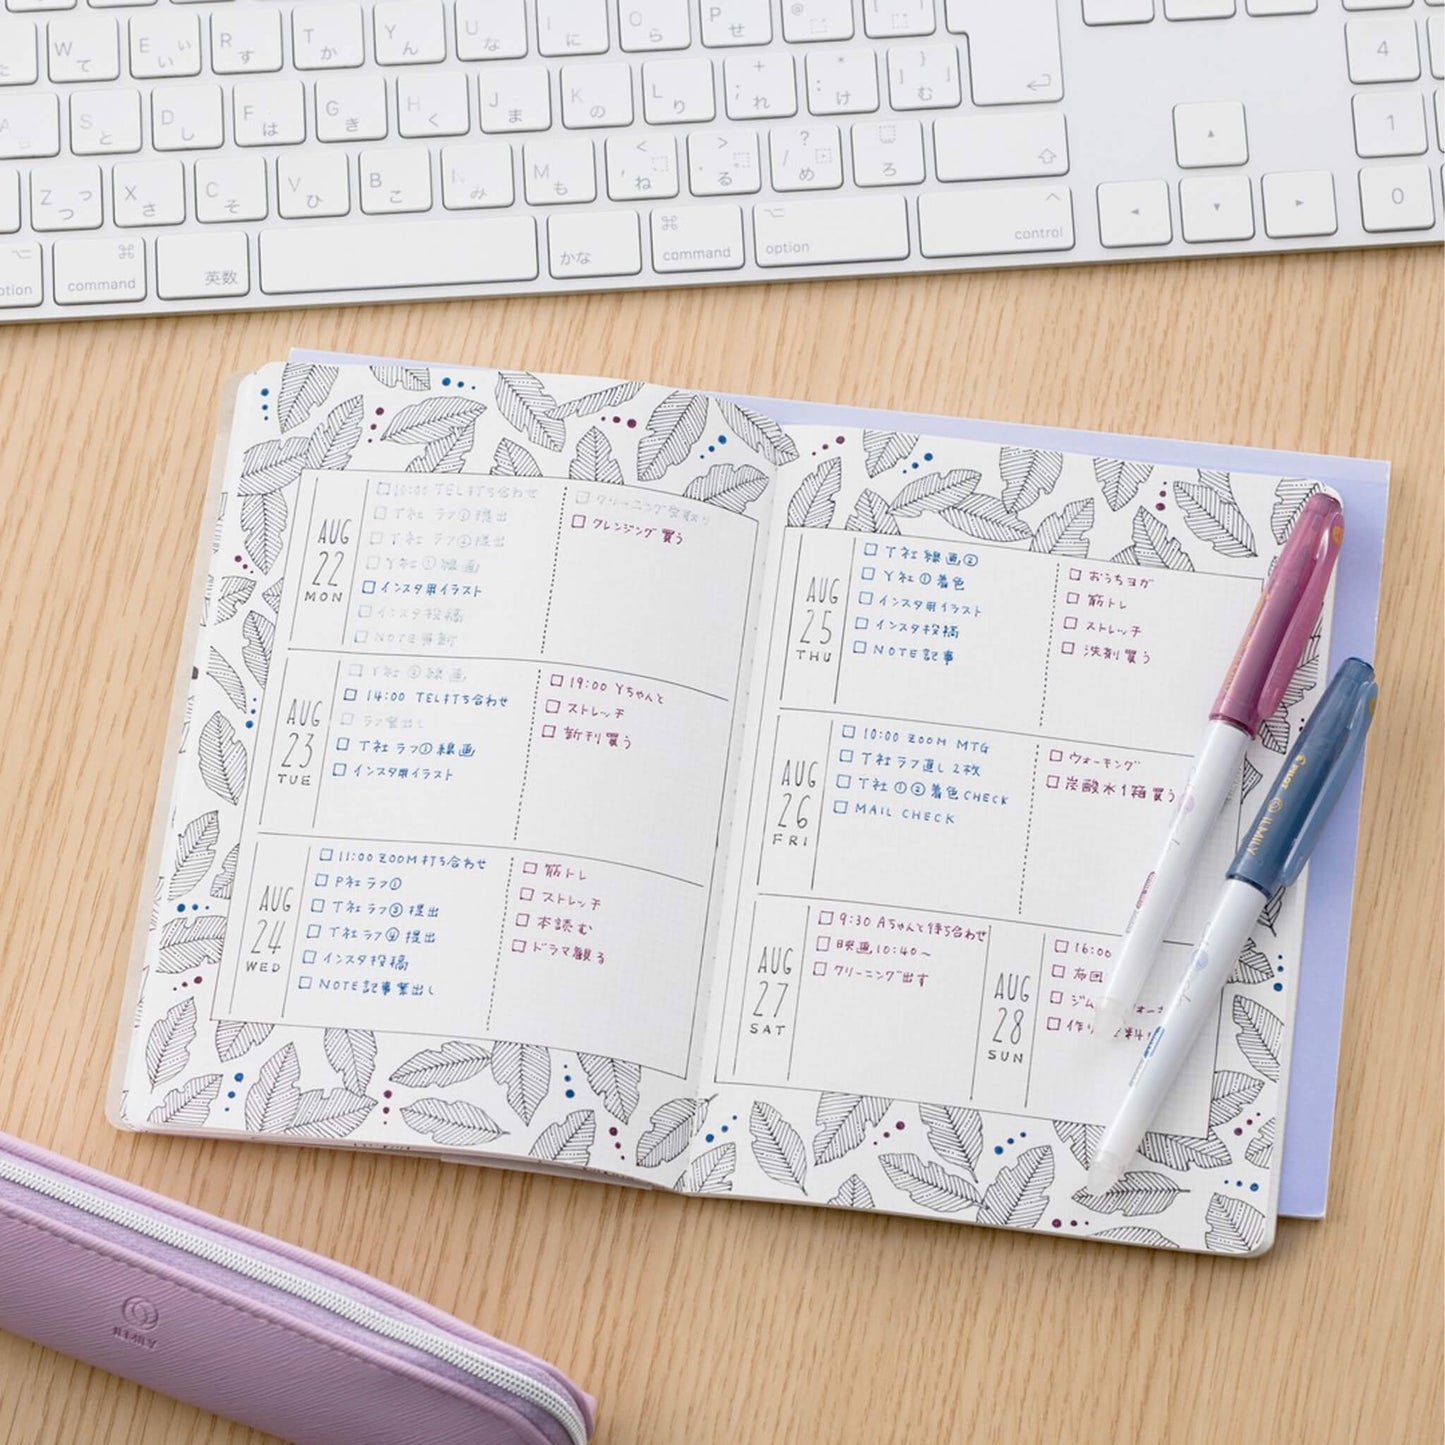 W て E い R す T か Y ん U な I に O ら P せ @
4
A S と D し F は G き H く J ま K の L り + ; れ * : け } ] む
1
Z つ っ X さ C そ V ひ B こ N み M も < , ね > . る ? / め ろ
0
option
⌘ command
英数
かな
⌘ command
option
control
AUG
22
MON
□10:00 TEL打ち合わせ
□T社 ラフ①提出
□T社 ラフ②提出
□Y社①線画
□インスタ用イラスト
□インスタ投稿
□NOTE更新
□クリーニング受取り
□クレンジング買う
AUG
23
TUE
□Y社②線画
□14:00 TEL打ち合わせ
□ラフ案出し
□T社ラフ①線画
□インスタ用イラスト
□19:00 Yちゃんと
□ストレッチ
□新刊買う
AUG
24
WED
□11:00 ZOOM打ち合わせ
□P社ラフ①
□T社ラフ③提出
□T社ラフ④提出
□インスタ投稿
□NOTE記事案出し
□筋トレ
□ストレッチ
□本読む
□ドラマ観る
AUG
25
THU
□T社線画②
□Y社①着色
□インスタ用イラスト
□インスタ投稿
□NOTE記事
□おうちヨガ
□筋トレ
□ストレッチ
□洗剤買う
AUG
26
FRI
□10:00 ZOOM MTG
□T社ラフ直し2枚
□T社①②着色CHECK
□MAIL CHECK
□ウォーキング
□炭酸水1箱買う
AUG
27
SAT
□9:30 Aちゃんと待ち合わせ
□映画10:40〜
□クリーニング出す
AUG
28
SUN
□16:00
□布団
□ジム
□作り
PILOT ILMILY
ILMILY